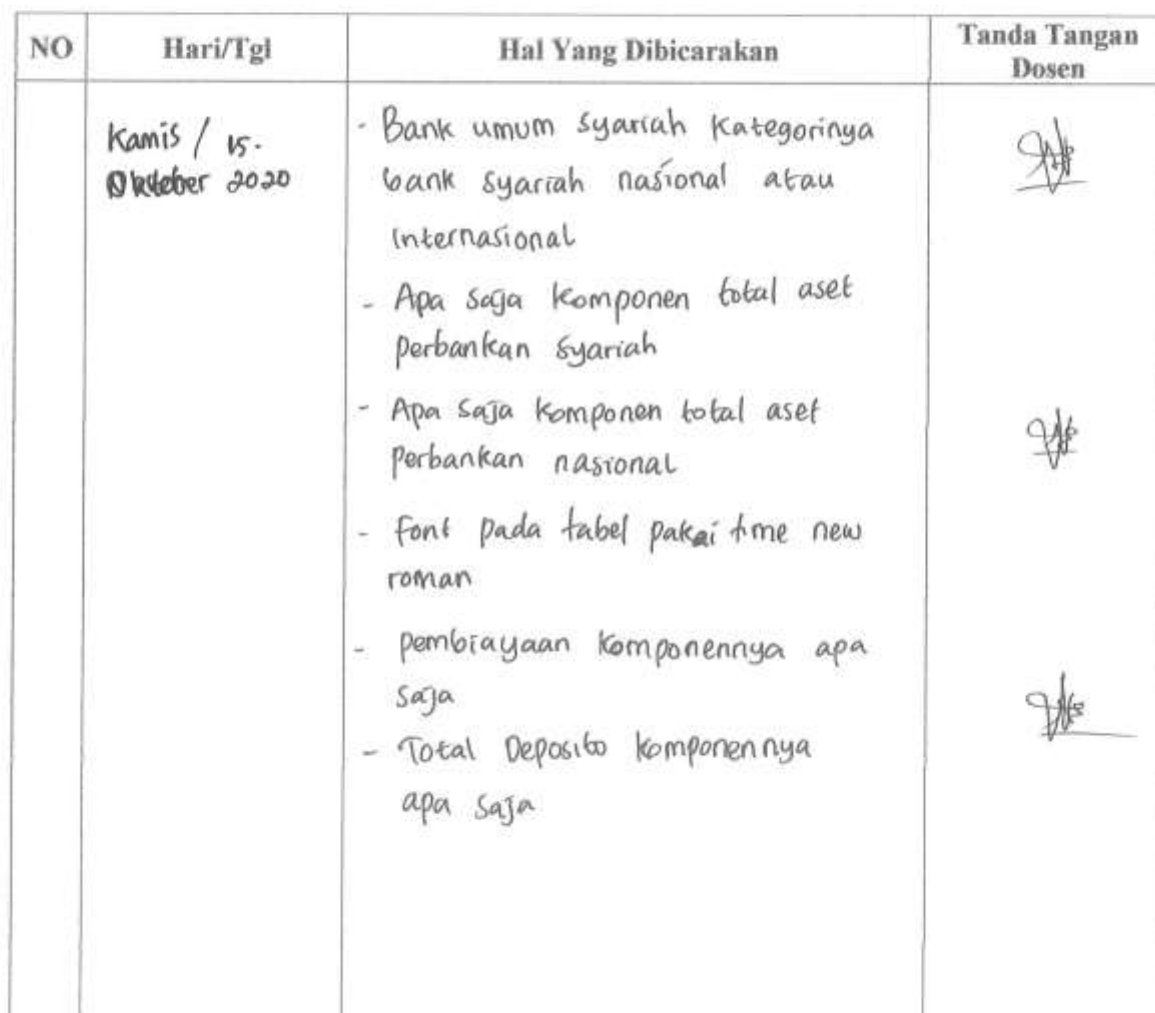 NO Hari/Tgl Hal Yang Dibicarakan Tanda Tangan
Dosen
Kamis / 15.
Oktober 2020
- Bank umum syariah Kategorinya
bank syariah nasional atau
internasional
- Apa saja komponen total aset
perbankan syariah
- Apa saja komponen total aset
perbankan nasional
- Font pada tabel pakai time new
roman
- pembiayaan komponennya apa
saja
- Total Deposito komponennya
apa saja